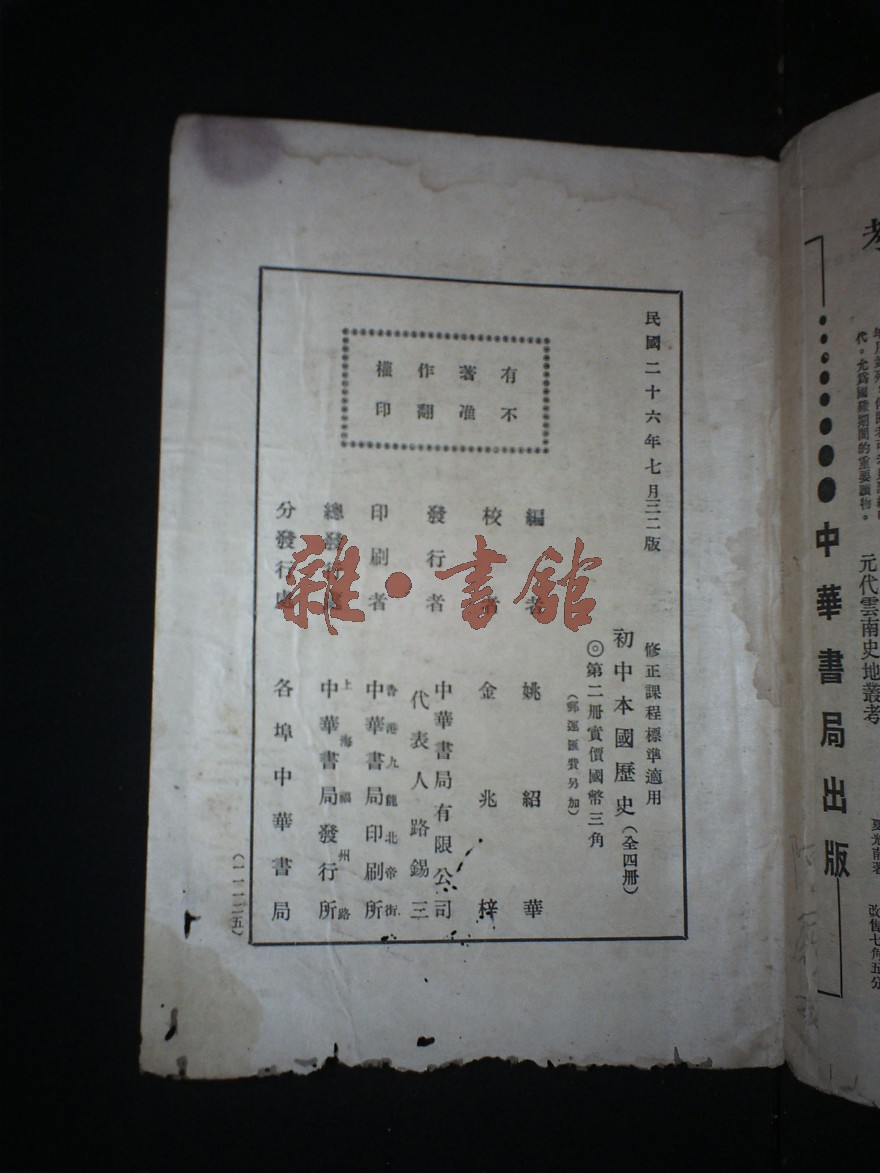 民國二十六年七月三二版
修正課程標準適用
初中本國歷史（全四冊）
◎第二冊實價國幣三角
（郵運匯費另加）
有著作權
不准翻印
編者 姚紹華
校者 金兆梓
發行者 中華書局有限公司
代表人 路錫三
印刷者 香港九龍北帝街
中華書局印刷所
總發行處 上海福州路
中華書局發行所
分發行處 各埠中華書局
（一一一二五）
雜·書館
考
代。允爲國難期間的重要讀物。
元代雲南史地叢考
夏光南著
改售七角五分
中華書局出版